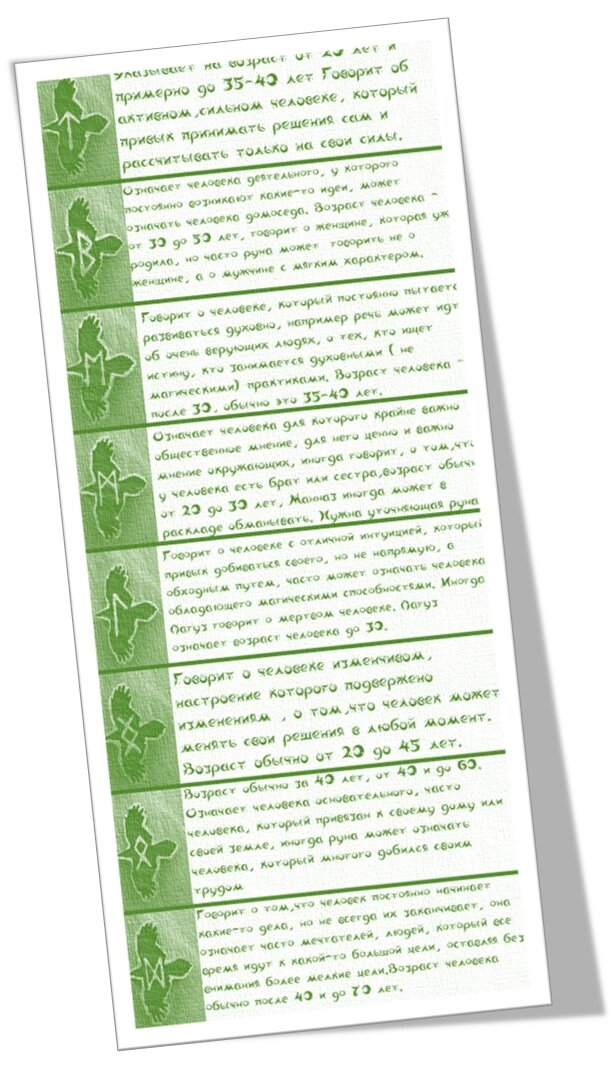 Указывает на возраст от 20 лет и
примерно до 35-40 лет Говорит об
активном,сильном человеке, который
привык принимать решения сам и
рассчитывать только на свои силы.
Означает человека деятельного, у которого
постоянно возникают какие-то идеи, может
означать человека домоседа. Возраст человека -
от 30 до 50 лет, говорит о женщине, которая уж
родила, но часто руна может говорить не о
женщине, а о мужчине с мягким характером.
Говорит о человеке, который постоянно пытаетс
развиваться духовно, например речь может идт
об очень верующих людях, о тех, кто ищет
истину, кто занимается духовными ( не
магическими) практиками. Возраст человека -
после 30, обычно это 35-40 лет.
Означает человека для которого крайне важно
общественное мнение, для него ценно и важно
мнение окружающих, иногда говорит, о том,что
у человека есть брат или сестра,возраст обычн
от 20 до 30 лет, Манназ иногда может в
раскладе обманывать. Нужна уточняющая руна
Говорит о человеке с отличной интуицией, который
привык добиваться своего, но не напрямую, а
обходным путем, часто может означать человека
обладающего магическими способностями. Иногда
Лагуз говорит о мертвом человеке. Лагуз
означает возраст человека до 30.
Говорит о человеке изменчивом,
настроение которого подвержено
изменениям , о том,что человек может
менять свои решения в любой момент.
Возраст обычно от 20 до 45 лет.
Возраст обычно за 40 лет, от 40 и до 60.
Означает человека основательного, часто
человека, который привязан к своему дому или
своей земле, иногда руна может означать
человека, который многого добился своим
трудом
Говорит о том,что человек постоянно начинает
какие-то дела, но не всегда их заканчивает, она
означает часто мечтателей, людей, который все
время идут к какой-то большой цели, оставляя без
внимания более мелкие цели.Возраст человека
обычно после 40 и до 70 лет.